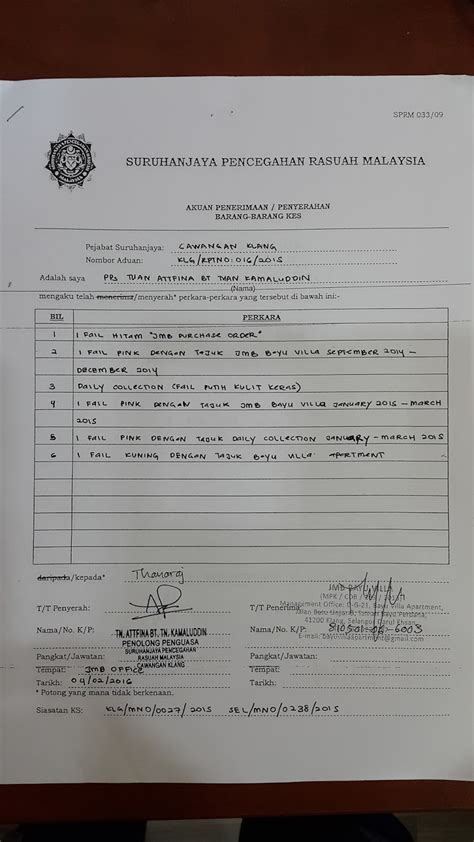 SPRM 033/09
SURUHANJAYA PENCEGAHAN RASUAH MALAYSIA
AKUAN PENERIMAAN / PENYERAHAN
BARANG-BARANG KES
Pejabat Suruhanjaya: CAWANGAN KLANG
Nombor Aduan: KLG/RPTNO:016/2015
Adalah saya PPS TUAN ATTFINA BT TUAN KAMALUDDIN
(Nama)
mengaku telah menerima/menyerah* perkara-perkara yang tersebut di bawah ini:-
BIL PERKARA
1 1 FAIL HITAM "JMB PURCHASE ORDER"
2 1 FAIL PINK DENGAN TAJUK JMB BAYU VILLA SEPTEMBER 2014 –
DECEMBER 2014
3 DAILY COLLECTION (FAIL PUTIH KULIT KERAS)
4 1 FAIL PINK DENGAN TAJUK JMB BAYU VILLA JANUARY 2015 – MARCH
2015
5 1 FAIL PINK DENGAN TAJUK DAILY COLLECTION JANUARY – MARCH 2015
6 1 FAIL KUNING DENGAN TAJUK BAYU VILLA APARTMENT
daripada/kepada* Thanaraj
JMB BAYU VILLA
T/T Penyerah: T/T Penerima:
Management Office: D-G-23, Bayu Villa Apartment,
41200 Klang, Selangor Darul Ehsan
Nama/No. K/P: TN. ATTFINA BT. TN. KAMALUDDIN Nama/No. K/P: 810501-06-6003
PENOLONG PENGUASA
SURUHANJAYA PENCEGAHAN
Pangkat/Jawatan: RASUAH MALAYSIA Pangkat/Jawatan:
CAWANGAN KLANG
Tempat: JMB OFFICE Tempat:
Tarikh: 04/02/2016 Tarikh:
* Potong yang mana tidak berkenaan.
Siasatan KS: KLG/MNO/0027/2015 SEL/MNO/0238/2015